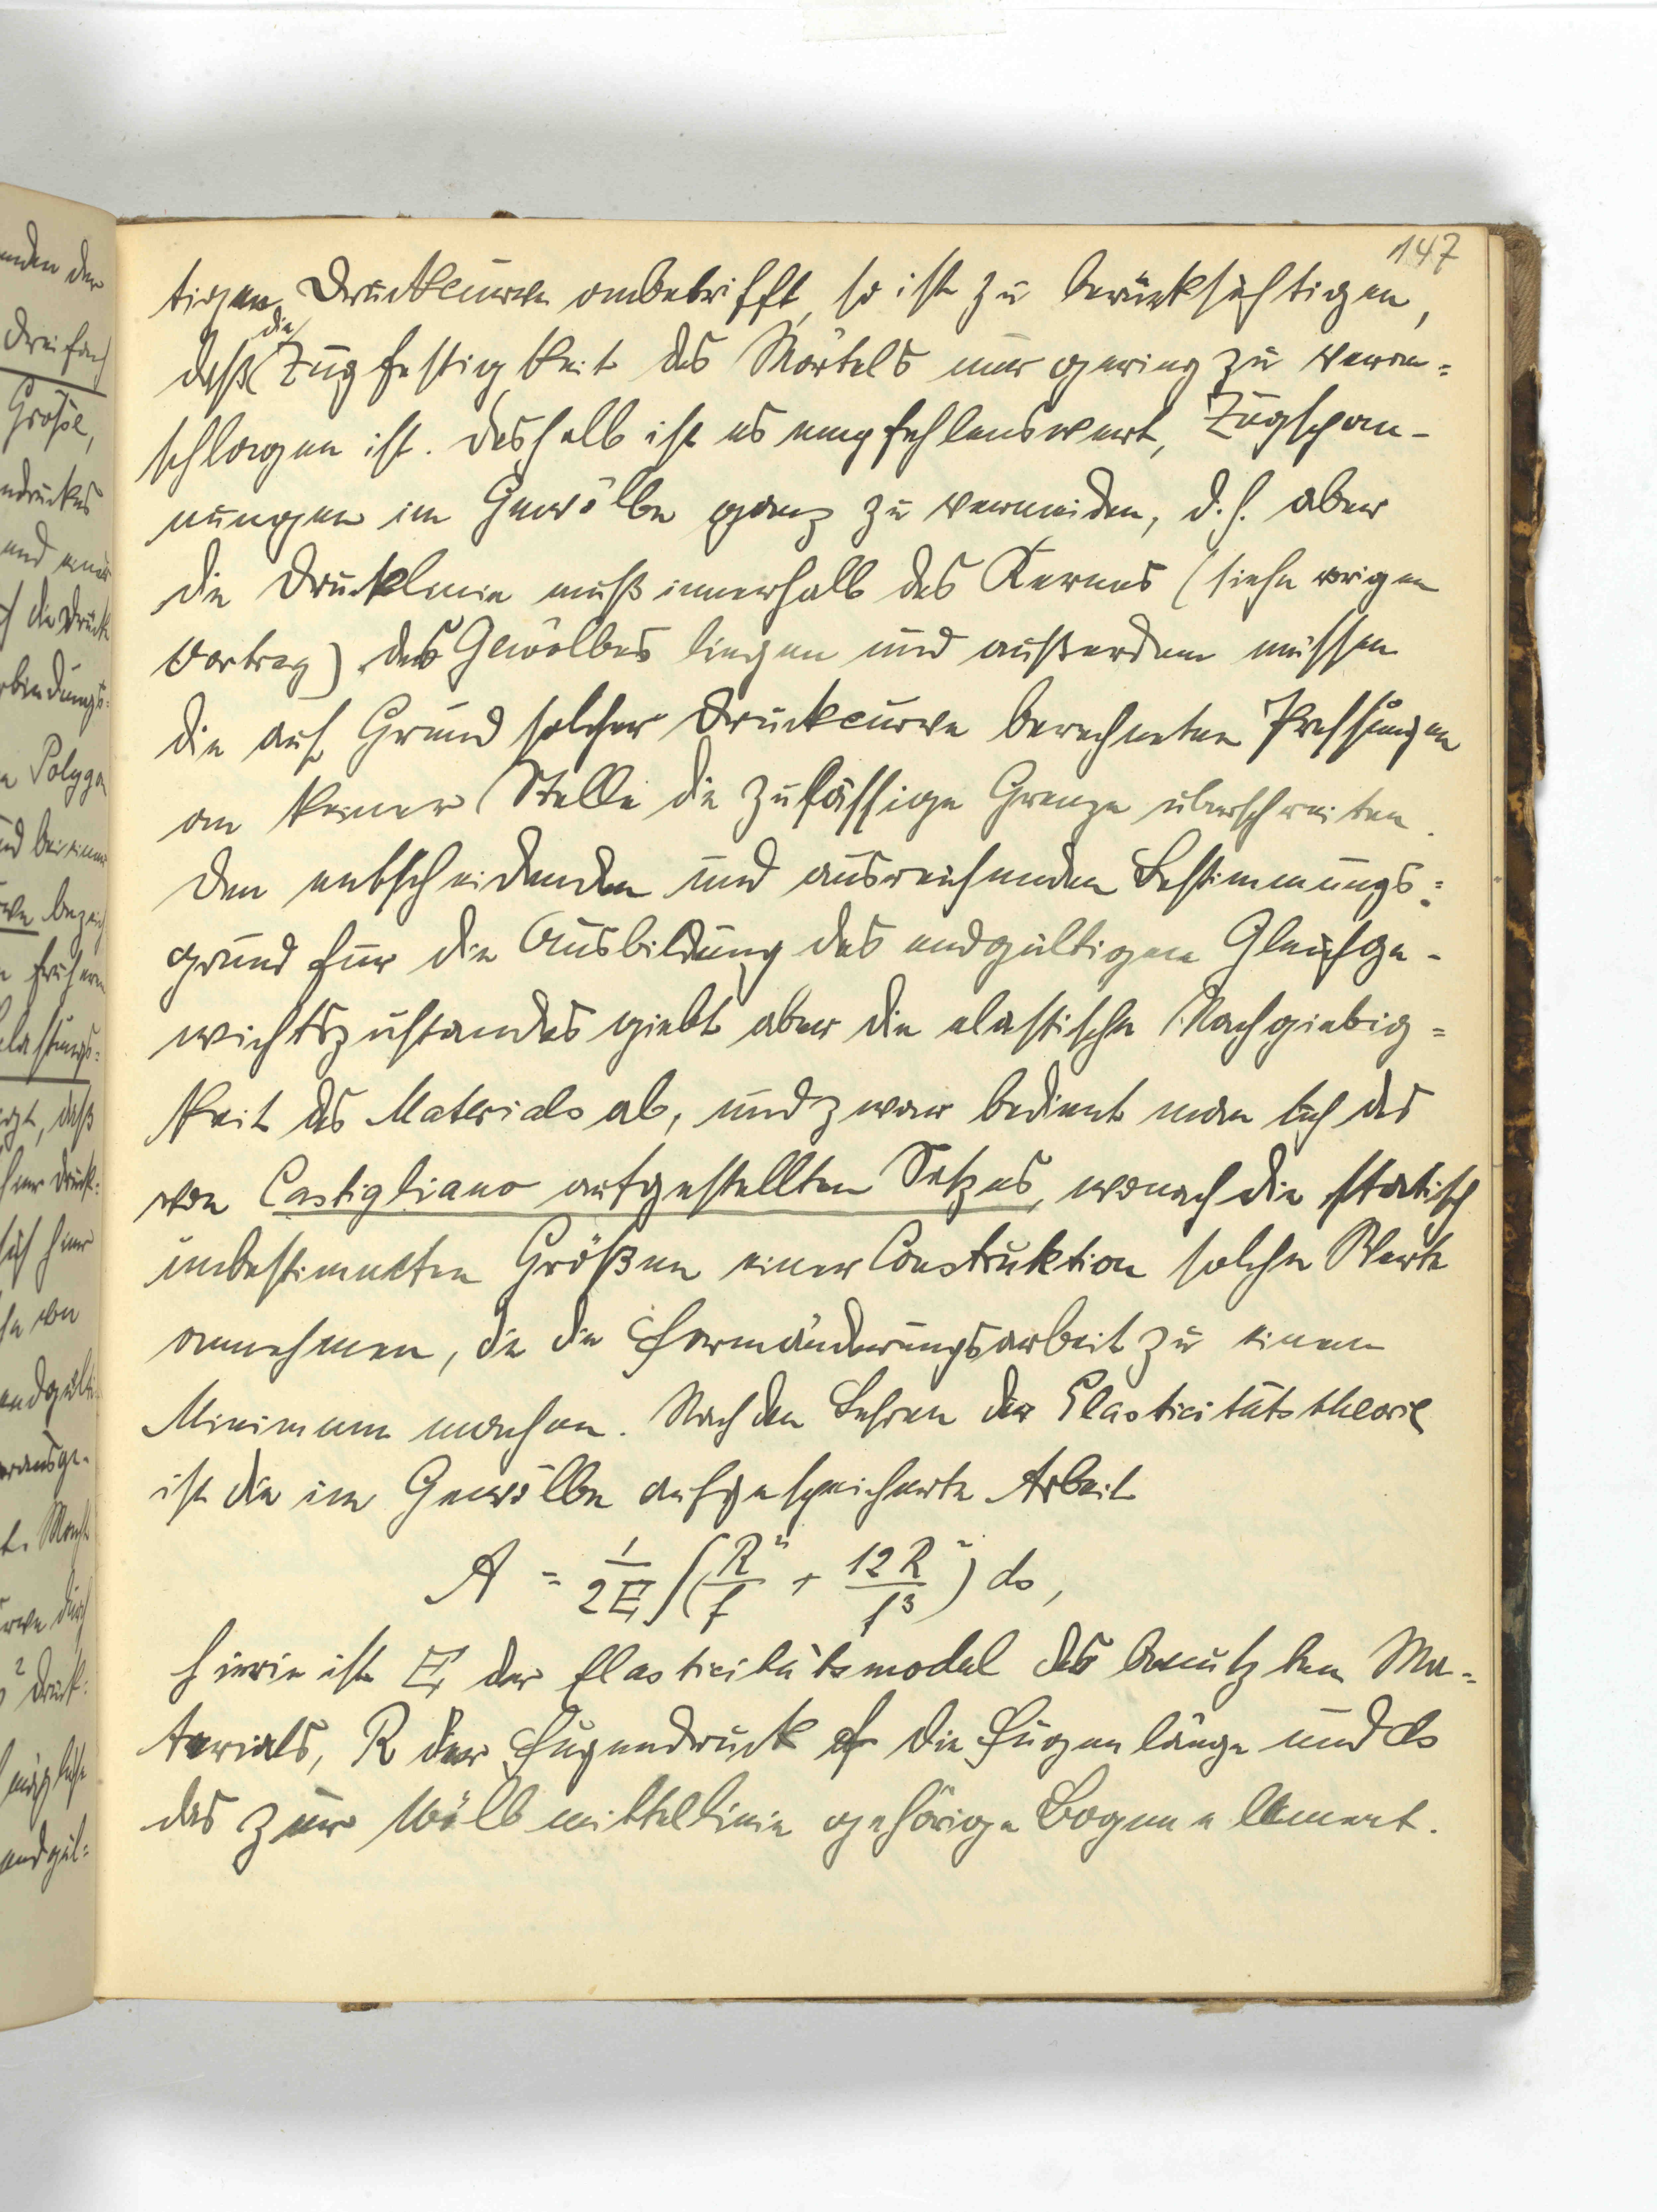 147
tigen Druckcurve anbetrifft, so ist zu berücksichtigen,
daß die Zugfestigkeit des Mörtels nur gering zu veran=
schlagen ist. Deshalb ist es empfehlenswert, Zugspan-
nungen im Gewölbe ganz zu vermeiden, d. h. aber
die Drucklinie muß innerhalb des Kernes (siehe vorigen
Vortrag) des Gewölbes liegen und außerdem müssen
die auf Grund solcher Druckcurve berechneten Pressungen
an keiner Stelle die zulässige Grenze überschreiten.
Den entscheidenden und ausreichenden Bestimmungs=
grund für die Ausbildung des endgültigen Gleichge-
wichtszustandes giebt aber die elastische Nachgiebig=
keit des Materials ab, und zwar bedient man sich des
von Castigliano aufgestellten Satzes, wonach die statisch
unbestimmten Größen einer Construktion solche Werte
annehmen, die die Formänderungsarbeit zu einem
Minimum machen. Nach den Lehren der Elasticitätstheorie
ist die im Gewölbe aufgespeicherte Arbeit
A = 1/2E ∫(R²/f + 12R²/f³) ds,
hierin ist E der Elasticitätsmodul des benutzten Ma=
terials, R der Fugendruck f die Fugenlänge und ds
das zur Wölbmittellinie gehörige Bogenelement.